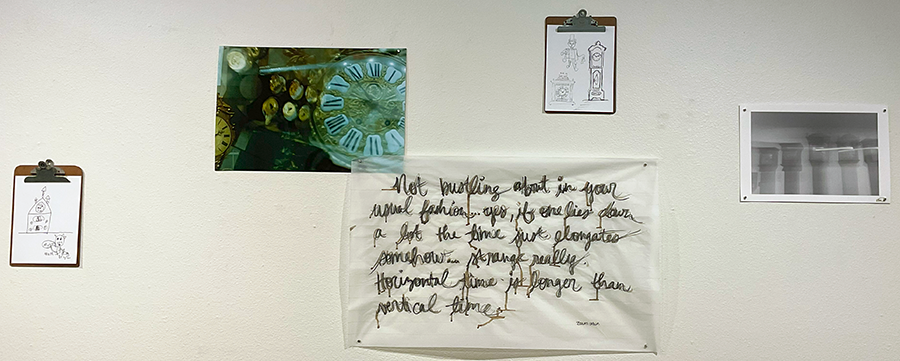 Not bustling about in your
usual fashion... yes, if one lies down
a lot the time just elongates
somehow... strange really.
Horizontal time is longer than
vertical time.